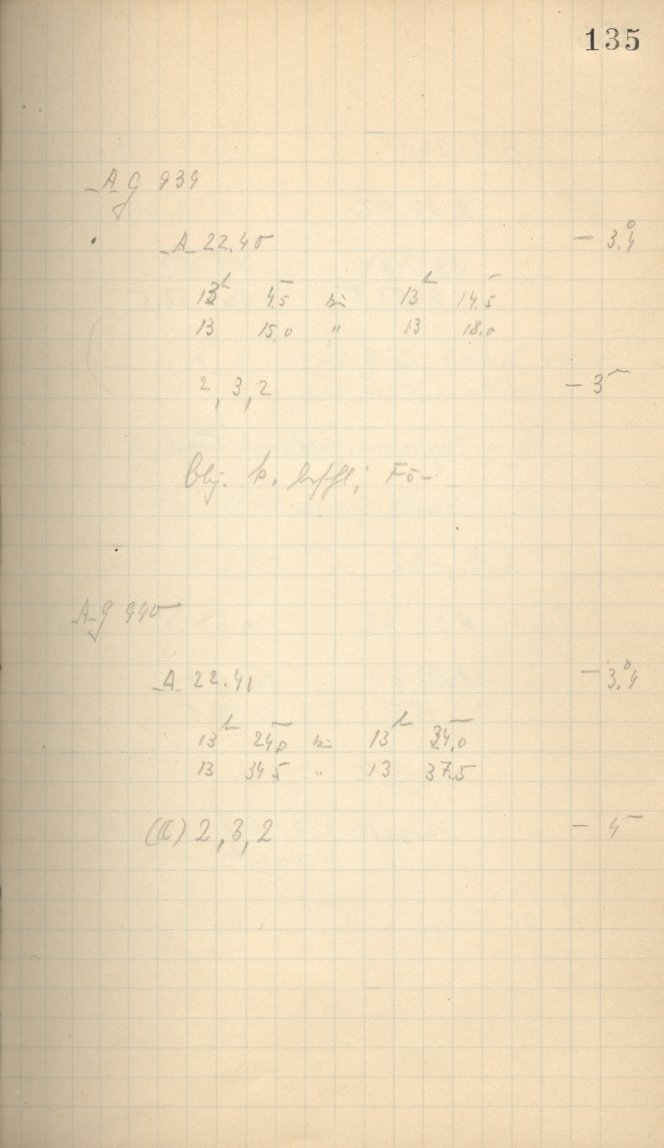 135
A g 939
A 22.40 - 3.°4
13ʰ 4.5ᵐ bis 13ʰ 14.5ᵐ
13 15.0 " 13 18.0
2, 3, 2 - 3ᵐ
Obj. b.
A g 940
A 22.41 - 3.°4
13ʰ 24.0ᵐ bis 13ʰ 34.0ᵐ
13 34.5 " 13 37.5
(a) 2, 3, 2 - 4ᵐ